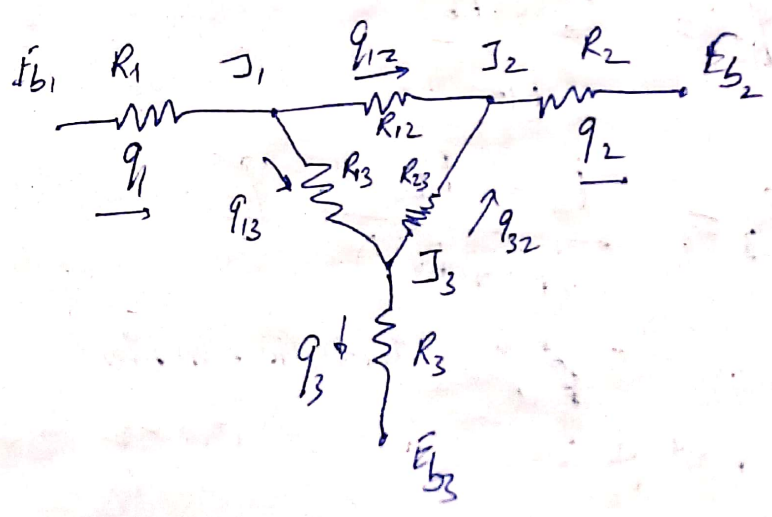 Eb1 R1 J1 q12 J2 R2 Eb2
R12
q1 R13 R23 q2
q13 q32
J3
q3 R3
Eb3